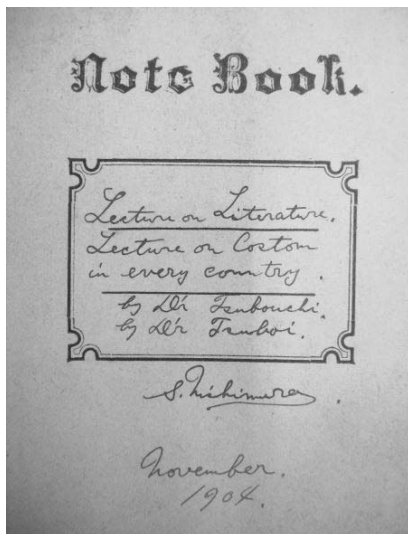 Note Book.
Lecture on Literature.
Lecture on Costom
in every country.
by Dr Tsubouchi.
by Dr Tsuboi.
S. Nishimura.
November.
1904.